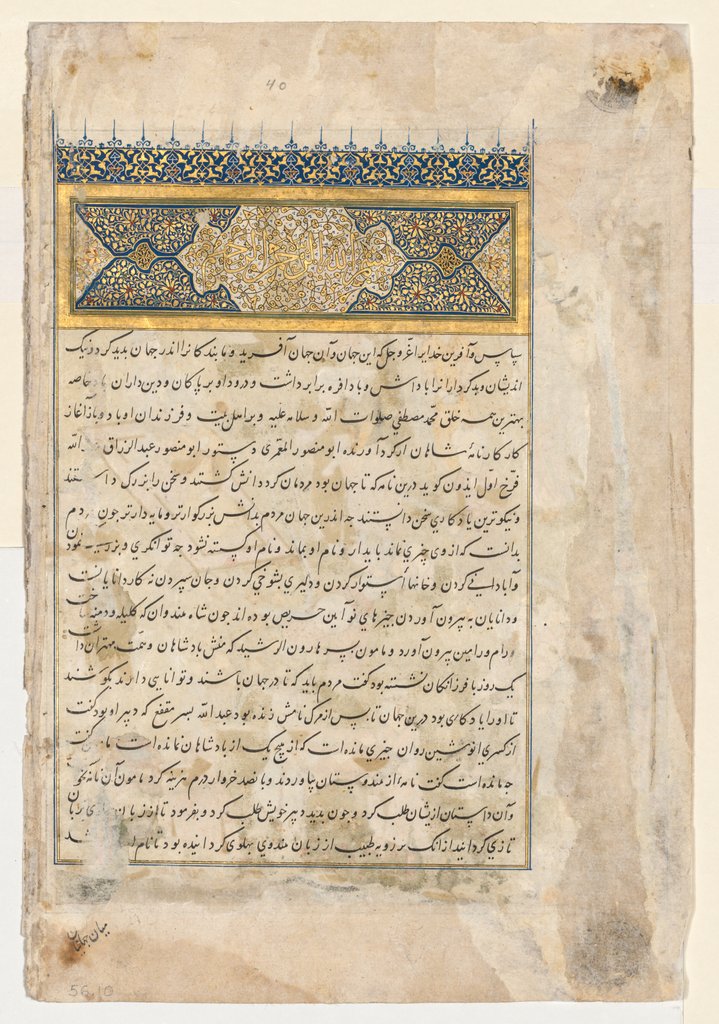 40
بسم الله الرحمن الرحیم
سپاس و آفرین خدایرا عز و جل که این جهان و آن جهان آفرید و ما بندگانرا اندر جهان پدید کرد و نیک
اندیشان و بد کردارانرا پاداش و بادافره برابر داشت و درود او بر پاکان و دین داران باد خاصه
بهترین همه خلق محمد مصطفی صلوات الله و سلامه علیه و بر اهل بیت و فرزندان او باد و باز آغاز
کار کارنامهٔ شاهان از گرد آورنده ابو منصور المعمری دستور ابو منصور عبد الرزاق الله
فرخ اول ایذون کوید درین نامه که تا جهان بود مردمان کرد دانش کشتند و سخن را بزرک داشتند
و نیکوترین یادکاری سخن دانستند چه اندرین جهان مردم بدانش بزرکوارتر و مایه دارتر چون مردم
بدانست که از وی چیزی نماند بایدار و نام او بماند و نام او کسسته نشود چه توانکری و نمود
و آبادانی کردن و جانها استوار کردن و دلیری بشوخی کردن و جان سپردن نه کار دانایانست
و دانایان به بیرون آوردن چیزهای نو آیین حریص بوده اند جون شاه هندوان که کلیله و دمنه ساخت
و رام و رامین بیرون آورد و مامون بسر هارون الرشید که منش بادشاهان و همت مهتران داشت
یک روز با فرزانکان نشسته بود کفت مردم باید که تا در جهان باشند و توانایی دارند بکوشند
تا از او یادکاری بود درین جهان تا بس از مرک نامش زنده بود عبد الله بسر مقفع که دبیر او بود کفت
از کسری انوشین روان چیزی مانده است که از هیچ یک از بادشاهان نمانده است کفت
چه مانده است کفت نامهٔ از هندوستان بیاوردند و بانصد خروار درم هزینه کرد مامون آن نامه بخواست
و آن داستان ازیشان طلب کرد و جون بدید دبیر خویش طلب کرد و بفرمود تا از زبان بزبان
تازی کردانید از آنک برزویه طبیب از زبان هندوی بپهلوی کردانیده بود تا نام شد
56.10